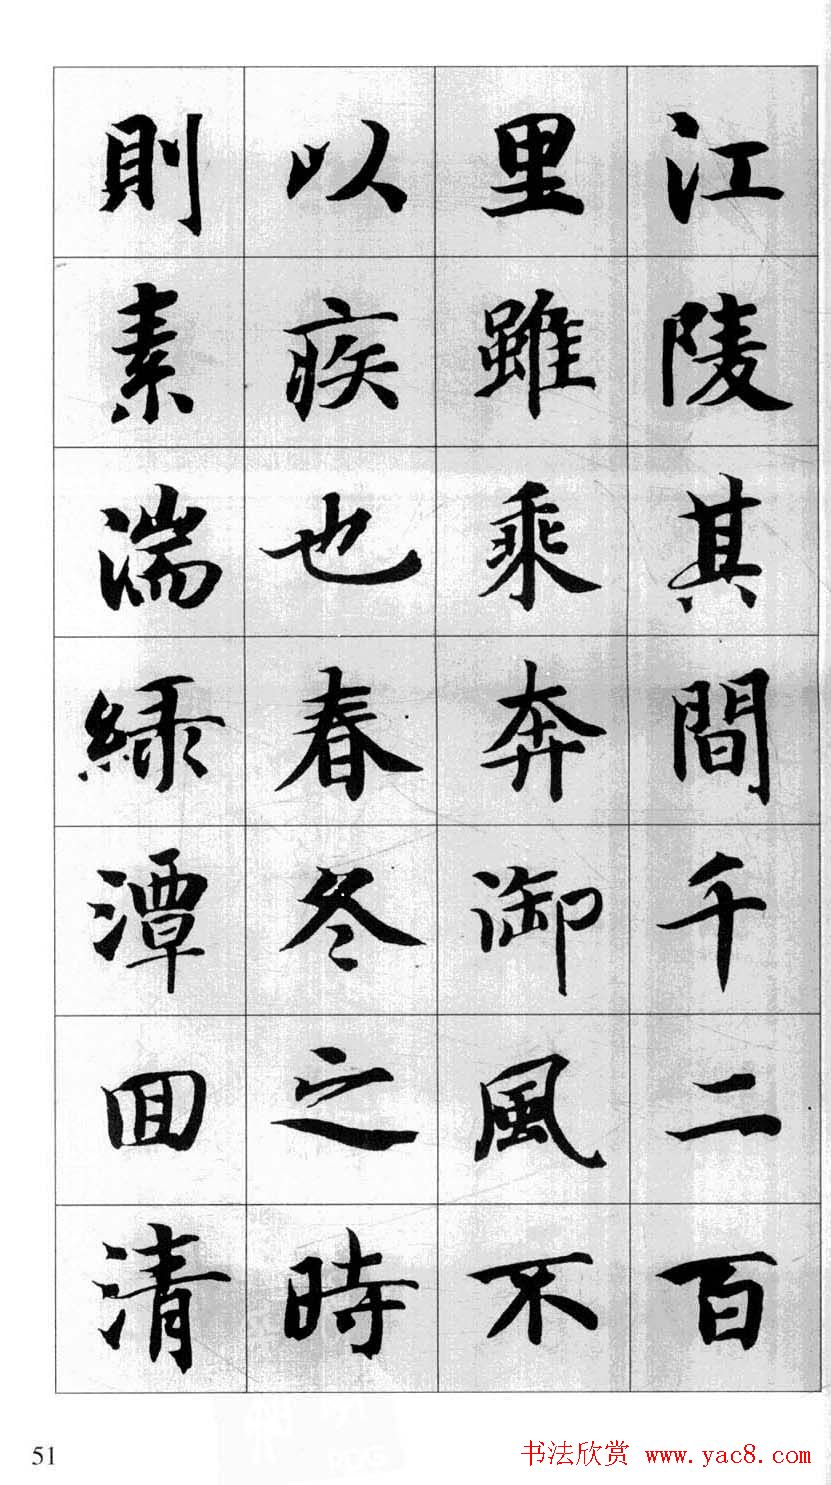 江陵其間千二百
里雖乘奔御風不
以疾也春冬之時
則素湍緑潭回清
51
书法欣赏 www.yac8.com